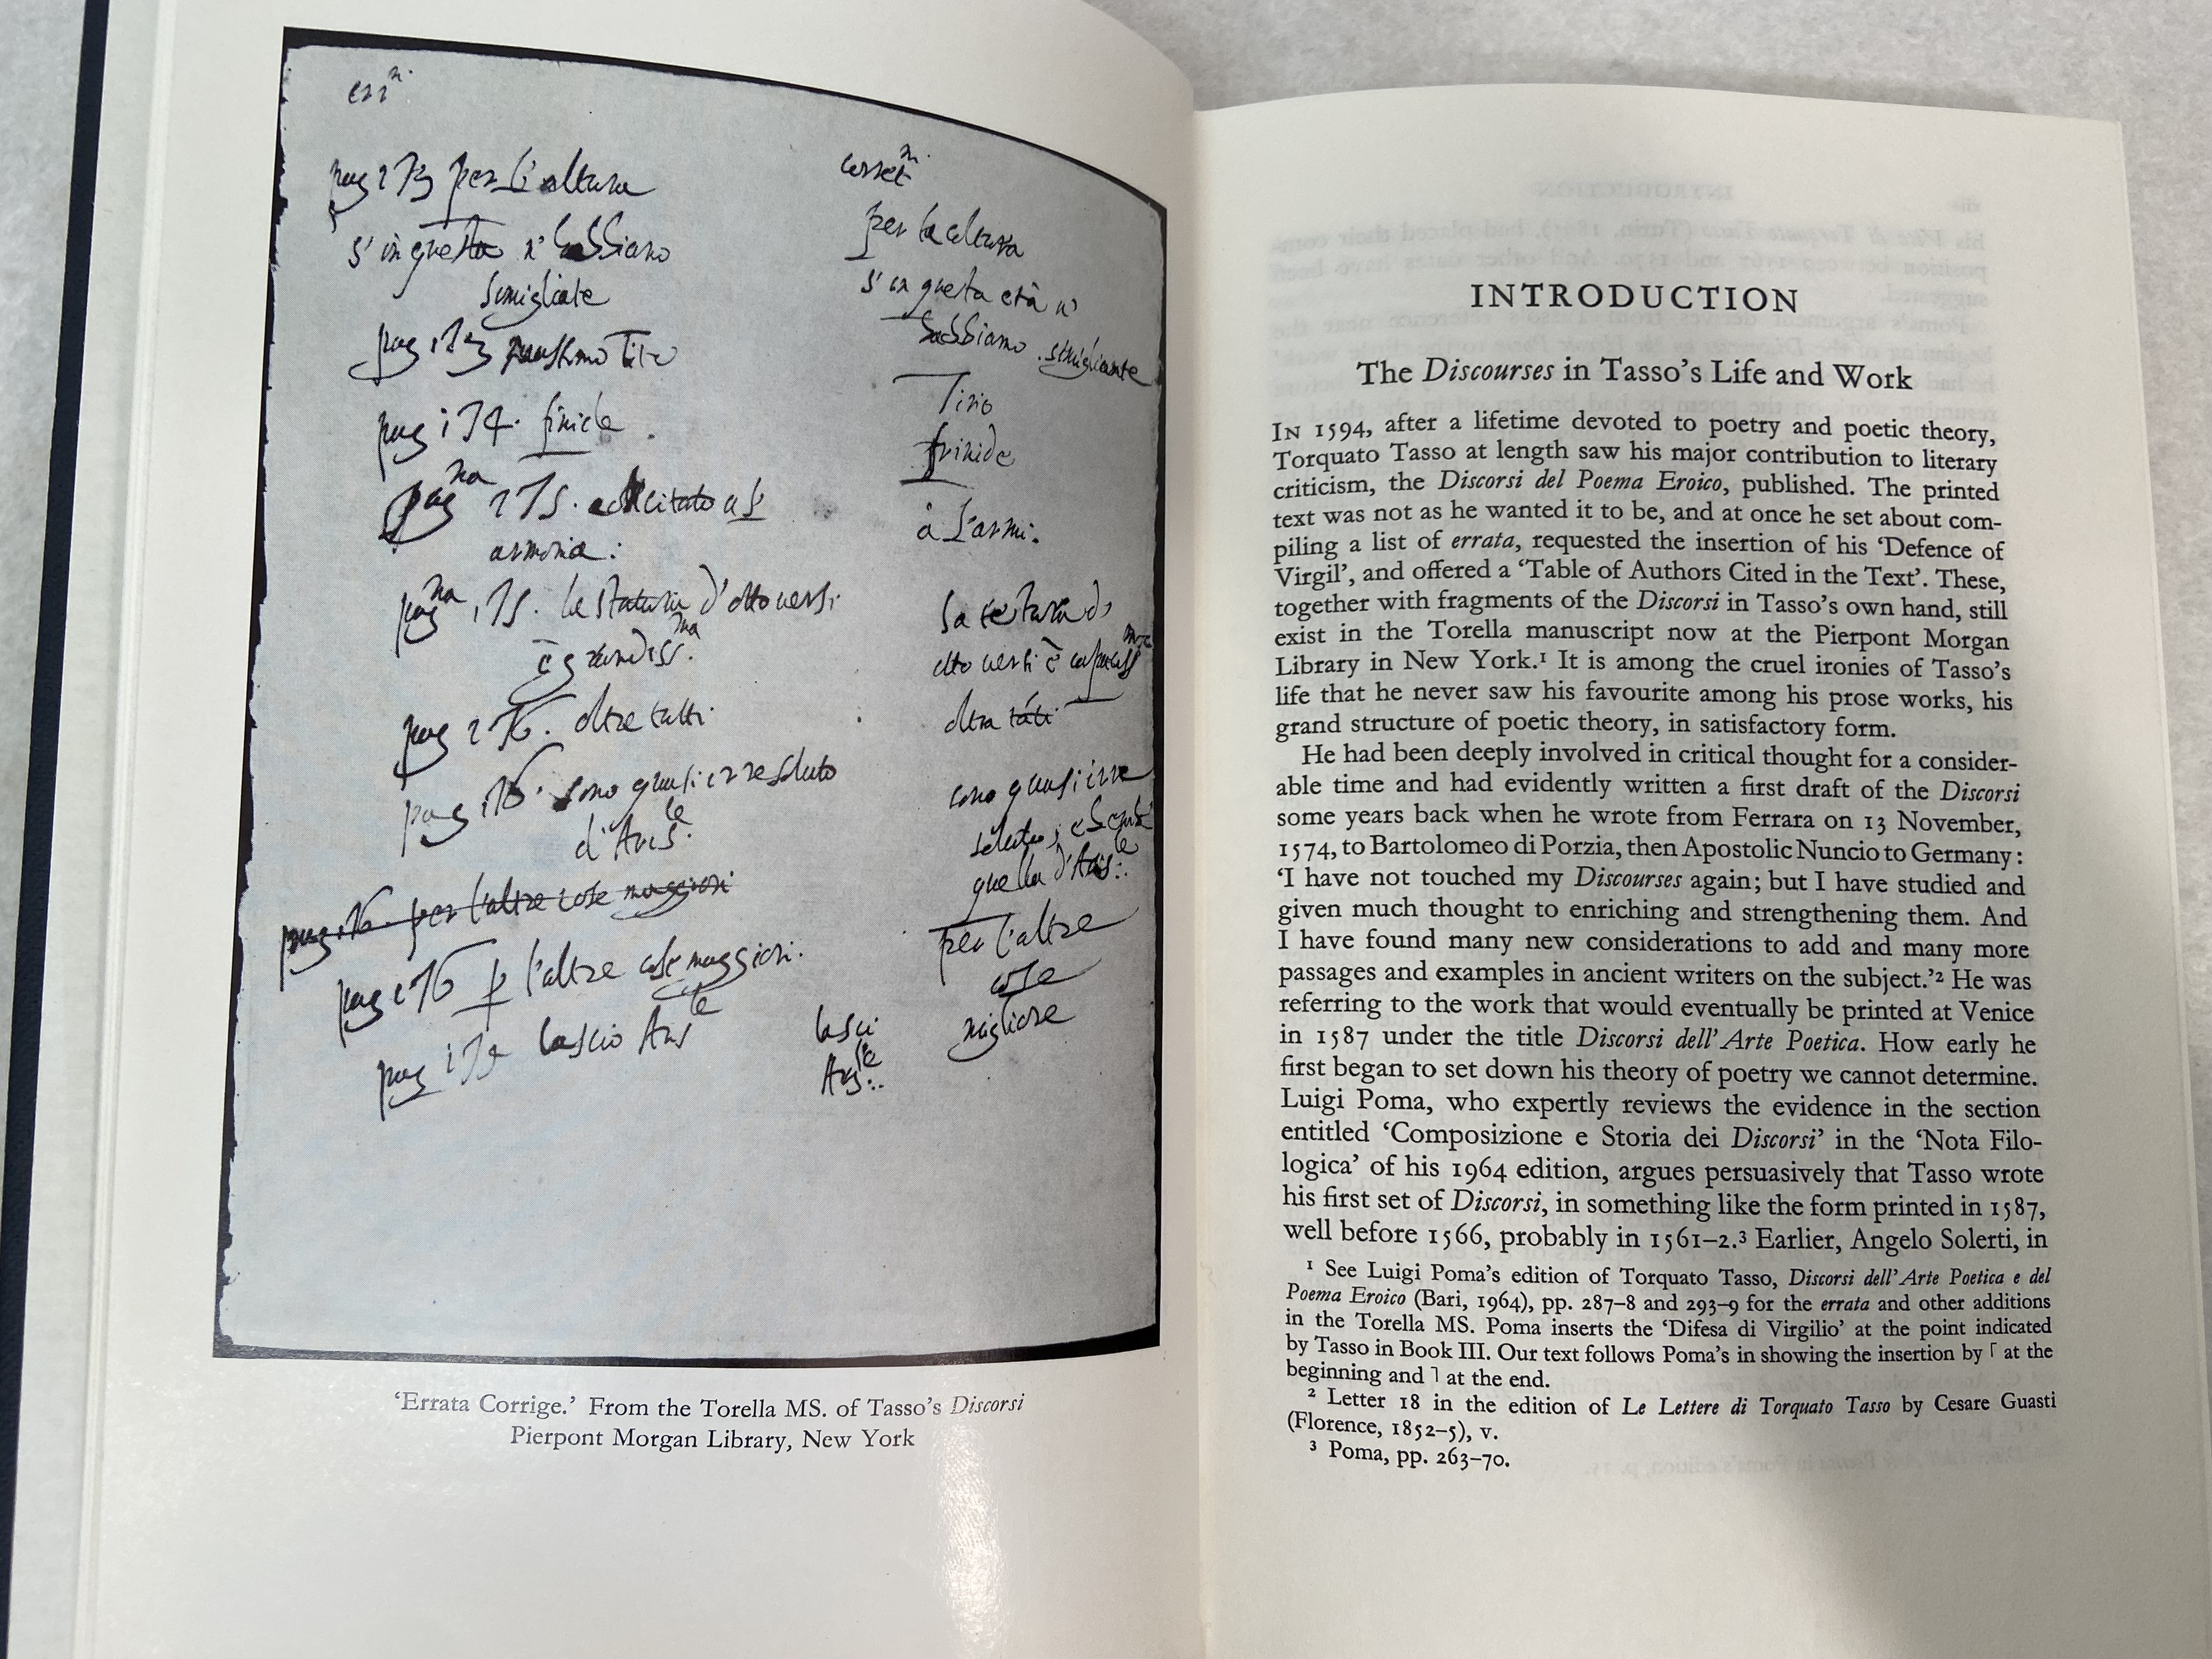 pag 173 per l'altura
s'in questa n' habbiamo
simigliate
pag 173 Tito
pag 174. finide
pag.na 175. as
armonia:
pag.na 175. la statura d'otto versi
è grandiss.ma
pag 176. oltre tutti
pag 176. sono quasi irresoluto
d'Aris.le
pag 176. per l'altre cose maggiori
pag 176 p l'altre cose maggiori.
pag 179 lascio Aris.le
per la
s' in questa età n'
habbiamo simigliante
Tirio
à l'armi.
la testura d'
otto versi è
oltra
sono quasi irre
soluto,
quella d'Aris.le
per l'altre
cose
migliore
lasci
Aris.le
'Errata Corrige.' From the Torella MS. of Tasso's Discorsi
Pierpont Morgan Library, New York
INTRODUCTION
The Discourses in Tasso's Life and Work
IN 1594, after a lifetime devoted to poetry and poetic theory,
Torquato Tasso at length saw his major contribution to literary
criticism, the Discorsi del Poema Eroico, published. The printed
text was not as he wanted it to be, and at once he set about com-
piling a list of errata, requested the insertion of his 'Defence of
Virgil', and offered a 'Table of Authors Cited in the Text'. These,
together with fragments of the Discorsi in Tasso's own hand, still
exist in the Torella manuscript now at the Pierpont Morgan
Library in New York.¹ It is among the cruel ironies of Tasso's
life that he never saw his favourite among his prose works, his
grand structure of poetic theory, in satisfactory form.
He had been deeply involved in critical thought for a consider-
able time and had evidently written a first draft of the Discorsi
some years back when he wrote from Ferrara on 13 November,
1574, to Bartolomeo di Porzia, then Apostolic Nuncio to Germany:
'I have not touched my Discourses again; but I have studied and
given much thought to enriching and strengthening them. And
I have found many new considerations to add and many more
passages and examples in ancient writers on the subject.'² He was
referring to the work that would eventually be printed at Venice
in 1587 under the title Discorsi dell'Arte Poetica. How early he
first began to set down his theory of poetry we cannot determine.
Luigi Poma, who expertly reviews the evidence in the section
entitled 'Composizione e Storia dei Discorsi' in the 'Nota Filo-
logica' of his 1964 edition, argues persuasively that Tasso wrote
his first set of Discorsi, in something like the form printed in 1587,
well before 1566, probably in 1561–2.³ Earlier, Angelo Solerti, in
¹ See Luigi Poma's edition of Torquato Tasso, Discorsi dell'Arte Poetica e del
Poema Eroico (Bari, 1964), pp. 287–8 and 293–9 for the errata and other additions
in the Torella MS. Poma inserts the 'Difesa di Virgilio' at the point indicated
by Tasso in Book III. Our text follows Poma's in showing the insertion by ⌈ at the
beginning and ⌉ at the end.
² Letter 18 in the edition of Le Lettere di Torquato Tasso by Cesare Guasti
(Florence, 1852–5), v.
³ Poma, pp. 263–70.